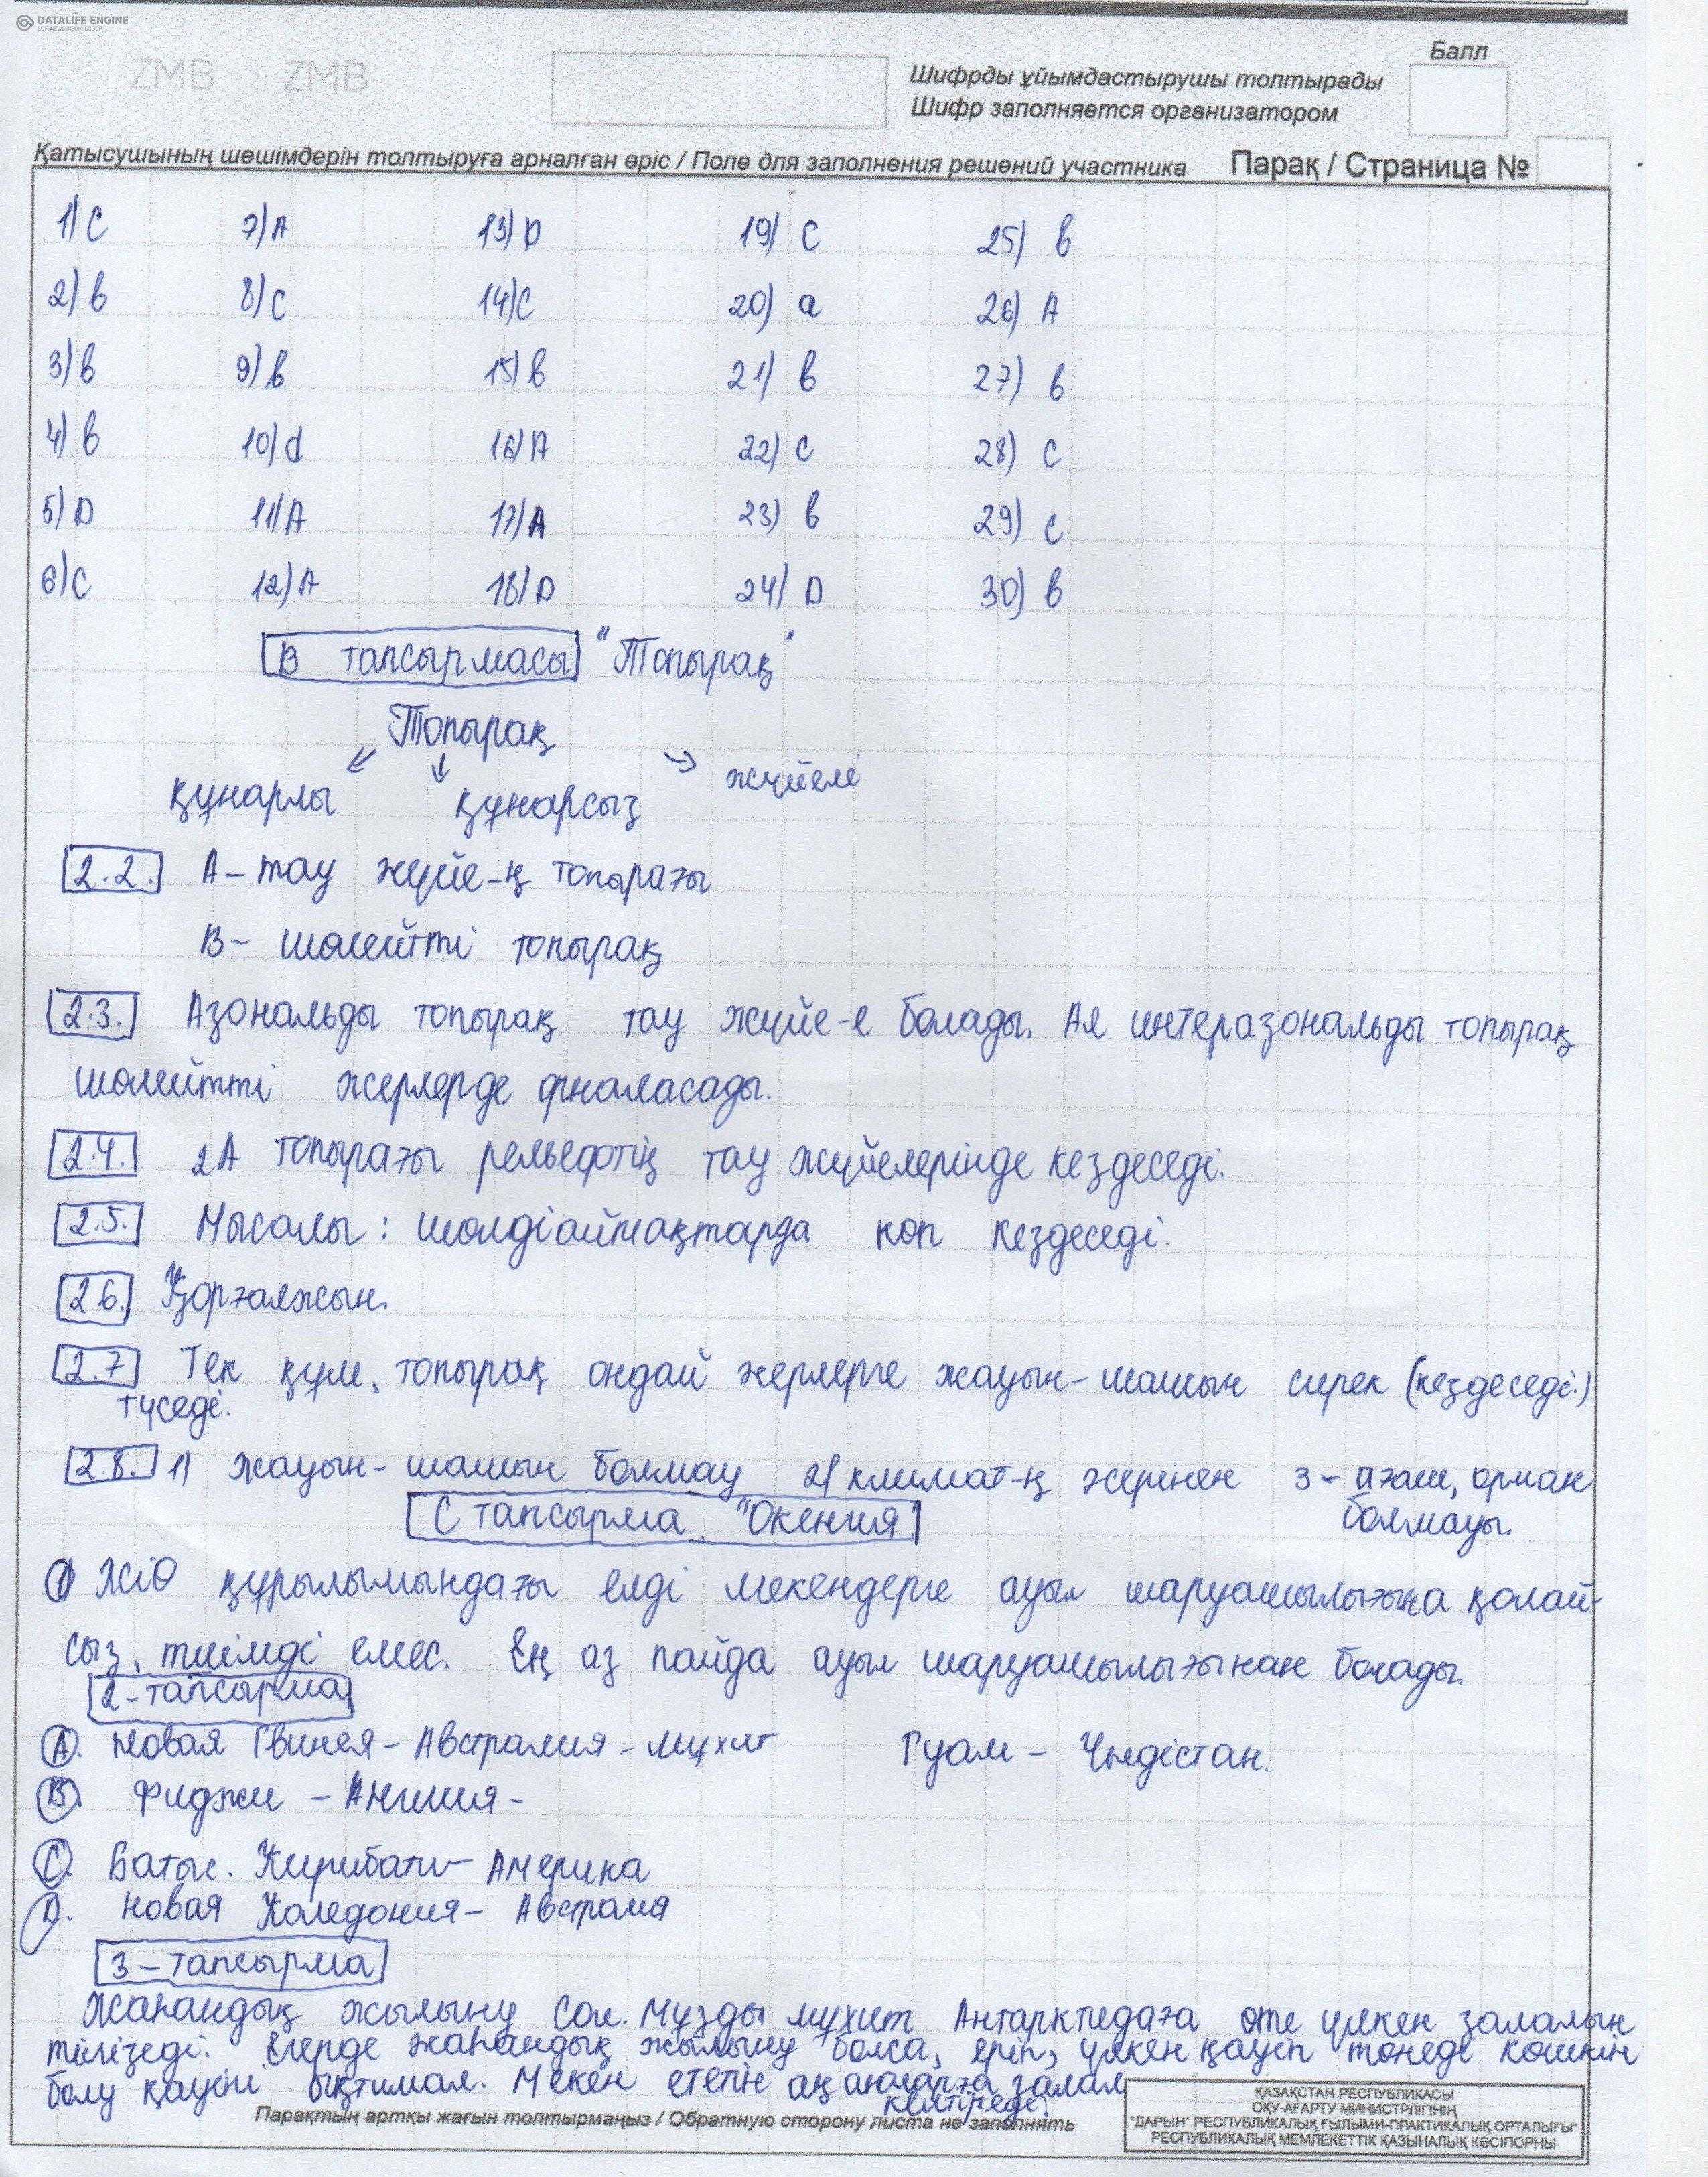 DATALIFE ENGINE
ZMB ZMB
Балл
Шифрды ұйымдастырушы толтырады
Шифр заполняется организатором
Қатысушының шешімдерін толтыруға арналған өріс / Поле для заполнения решений участника Парақ / Страница №
1) C 7) A 13) D 19) C 25) b
2) b 8) C 14) C 20) a 26) A
3) b 9) b 15) b 21) b 27) b
4) b 10) d 16) A 22) C 28) C
5) D 11) A 17) A 23) b 29) C
6) C 12) A 18) D 24) D 30) b
В тапсырмасы "Топырақ"
Топырақ
құнарлы құнарсыз жүйелі
2.2. А – тау жүйе-ң топырағы
В – шөлейтті топырақ
2.3. Азональды топырақ тау жүйе-е болады. Ал интеразональды топырақ
шөлейтті жерлерде орналасады.
2.4. 2А топырағы рельефтің тау жүйелерінде кездеседі.
2.5. Мысалы: шөлдіаймақтарда көп кездеседі.
2.6. Қорғалжын.
2.7 Тек құм, топырақ ондай жерлерге жауын-шашын сирек (кездеседі.)
түседі.
2.8. 1) жауын-шашын болмау 2) климат-ң жерінен 3 – ағаш, орман
болмауы.
С тапсырма. "Океания"
1 ЖІӨ құрылымындағы елді мекендерге ауыл шаруашылығына қолай-
сыз, тиімді емес. Ең аз пайда ауыл шаруашылығынан болады.
2 – тапсырма
А. Новая Гвинея – Австралия – мұхит Гуам – Үндістан.
В. Фиджи – Англия –
С. Батыс. Кирибати – Америка
D. Новая Каледония – Австралия
3 – тапсырма
Жаһандық жылыну Сол. Мұзды мұхит Антарктидаға өте үлкен залалын
тигізеді. Егерде жаһандық жылыну болса, еріп, үлкен қауіп төнеді көшкін
болу қаупі ықтимал. Мекен ететін ақ аюларға залал
келтіреді.
Парақтың артқы жағын толтырмаңыз / Обратную сторону листа не заполнять
ҚАЗАҚСТАН РЕСПУБЛИКАСЫ
ОҚУ-АҒАРТУ МИНИСТРЛІГІНІҢ
"ДАРЫН" РЕСПУБЛИКАЛЫҚ ҒЫЛЫМИ-ПРАКТИКАЛЫҚ ОРТАЛЫҒЫ"
РЕСПУБЛИКАЛЫҚ МЕМЛЕКЕТТІК ҚАЗЫНАЛЫҚ КӘСІПОРНЫ